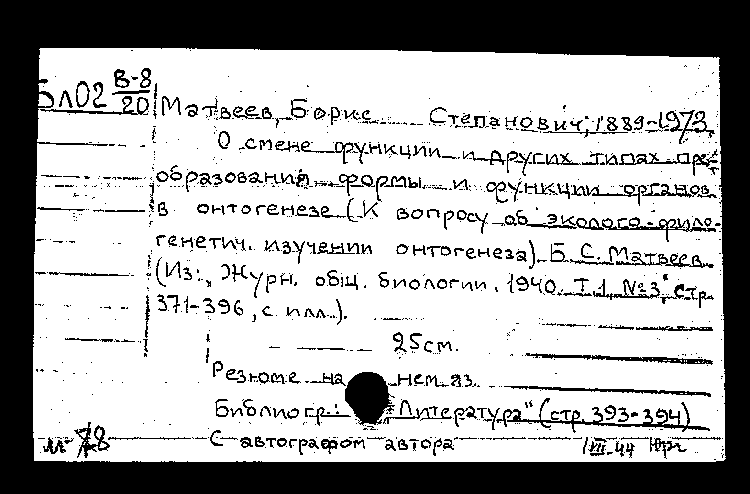 Бл02 В-8/20
Матвеев, Борис Степанович, 1889-1973.
О смене функции и других типах пре-
образования формы и функции органов
в онтогенезе (К вопросу об эколого-фило-
генетич. изучении онтогенеза). Б. С. Матвеев
(Из: „Журн. общ. биологии. 1940. Т.1, №3", стр.
371-396, с илл.).
25см.
Резюме на нем. яз.
Библиогр.: „Литература" (стр. 393-394)
С автографом автора
1 III-44